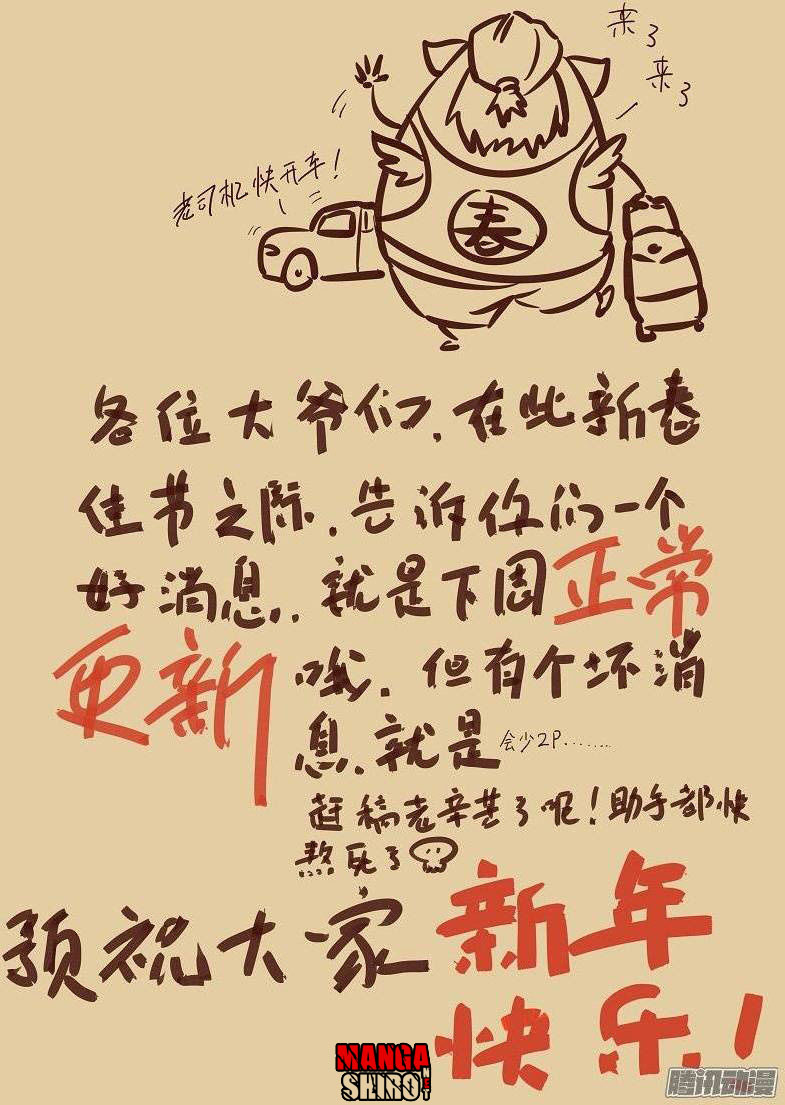 来了
来了
老司机快开车!
春
各位大爷们,在此新春
佳节之际,告诉你们一个
好消息,就是下周正常
更新哦,但有个坏消
息,就是会少2P.......
赶稿老辛苦了呢!助手都快
熬死了
预祝大家新年
快乐!
MANGA
SHIRO!
NET
腾讯动漫